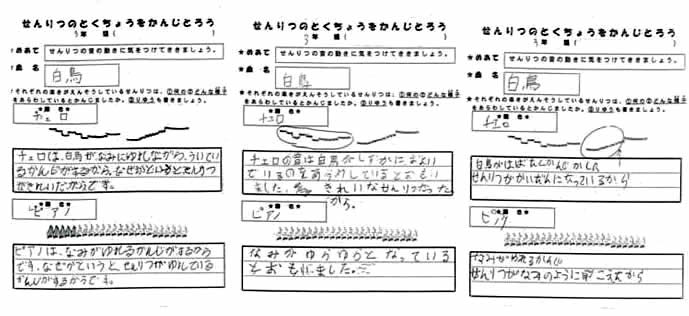 せんりつのとくちょうをかんじとろう
3年 組( )
★めあて せんりつの音の動きに気をつけてききましょう。
★曲名
白鳥
★それぞれの楽きがえんそうしているせんりつは、①何の②どんな様子
をあらわしているとかんじましたか。③りゆうも書きましょう。
★楽器名★
チェロ
チェロは、白鳥がなみにゆれしながら、ういてい
るかんじがするから、なぜかというとせんりつ
がきれいだからです。
★楽器名★
ピアノ
ピアノは、なみがゆれるかんじがするから
です。なぜかというと、せんりつがゆれている
かんじがするからです。
せんりつのとくちょうをかんじとろう
3年 組( )
★めあて せんりつの音の動きに気をつけてききましょう。
★曲名
白鳥
★それぞれの楽きがえんそうしているせんりつは、①何の②どんな様子
をあらわしているとかんじましたか。③りゆうも書きましょう。
★楽器名★
チェロ
チェロの音は白鳥がしずかにおよい
でいるのをあらわしているとおもい
ました。 きれいなせんりつだった
から。
★楽器名★
ピアノ
なみがゆらゆらとなっている
とおもいました。
せんりつのとくちょうをかんじとろう
3年 組( )
★めあて せんりつの音の動きに気をつけてききましょう。
★曲名
白鳥
★それぞれの楽きがえんそうしているせんりつは、①何の②どんな様子
をあらわしているとかんじましたか。③りゆうも書きましょう。
★楽器名★
チェロ
白鳥がはばたくかんじがした
せんりつが になっているから
★楽器名★
ピアノ
なみがゆれるかんじ
せんりつがなみのようにきこえたから